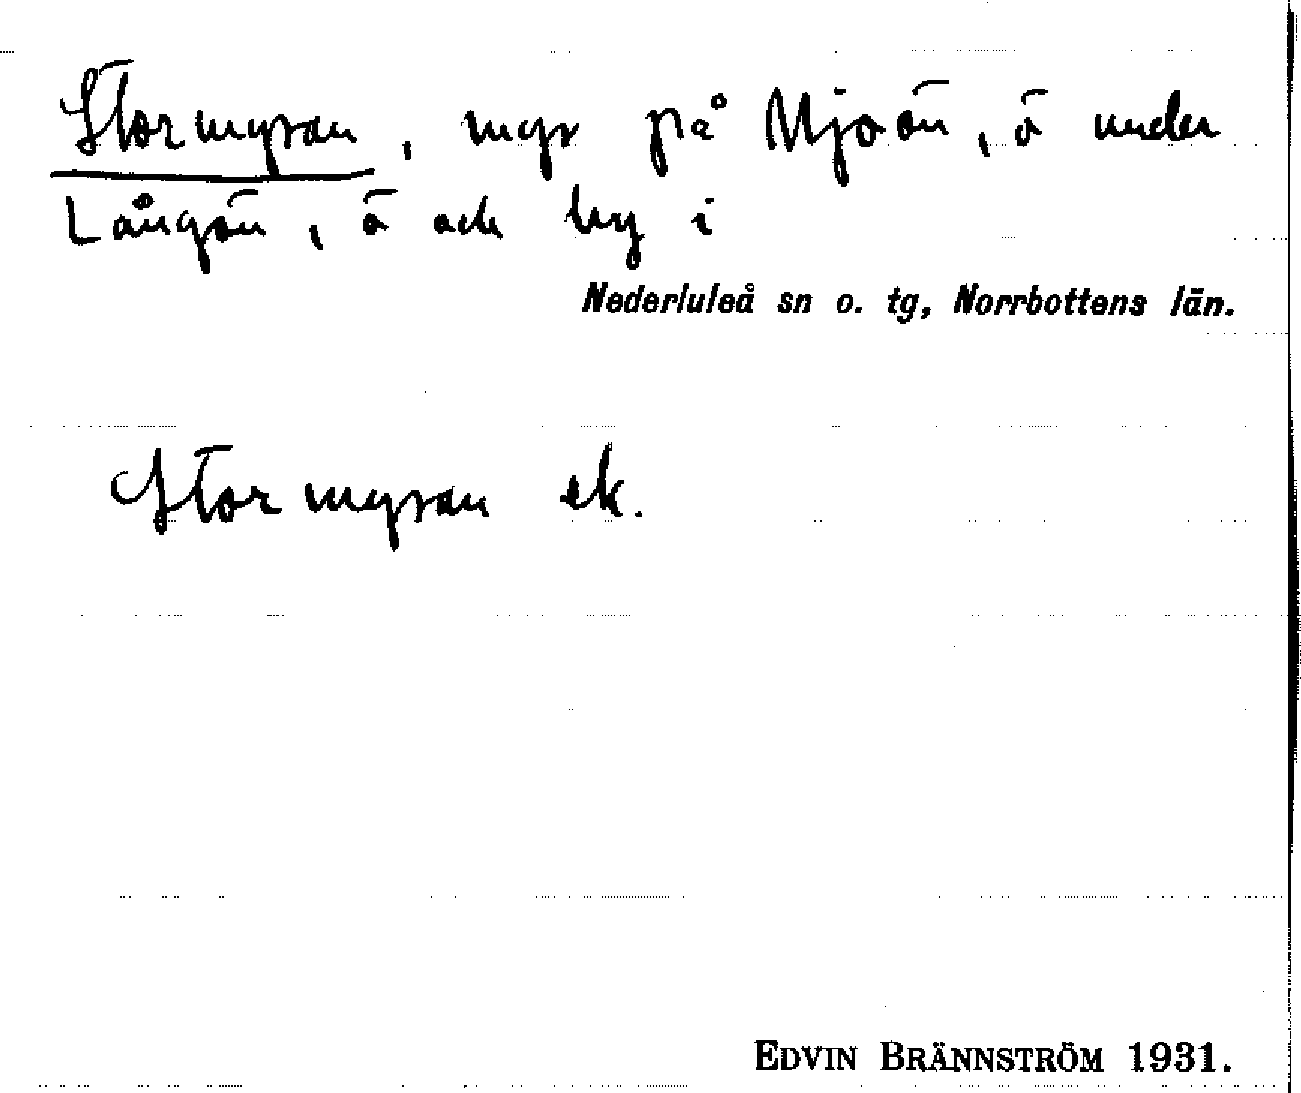 Stormyran, myr på Mjoön, ö under
Långön, ö och by i
Nederluleå sn o. tg, Norrbottens län.
Stormyran ek.
EDVIN BRÄNNSTRÖM 1931.